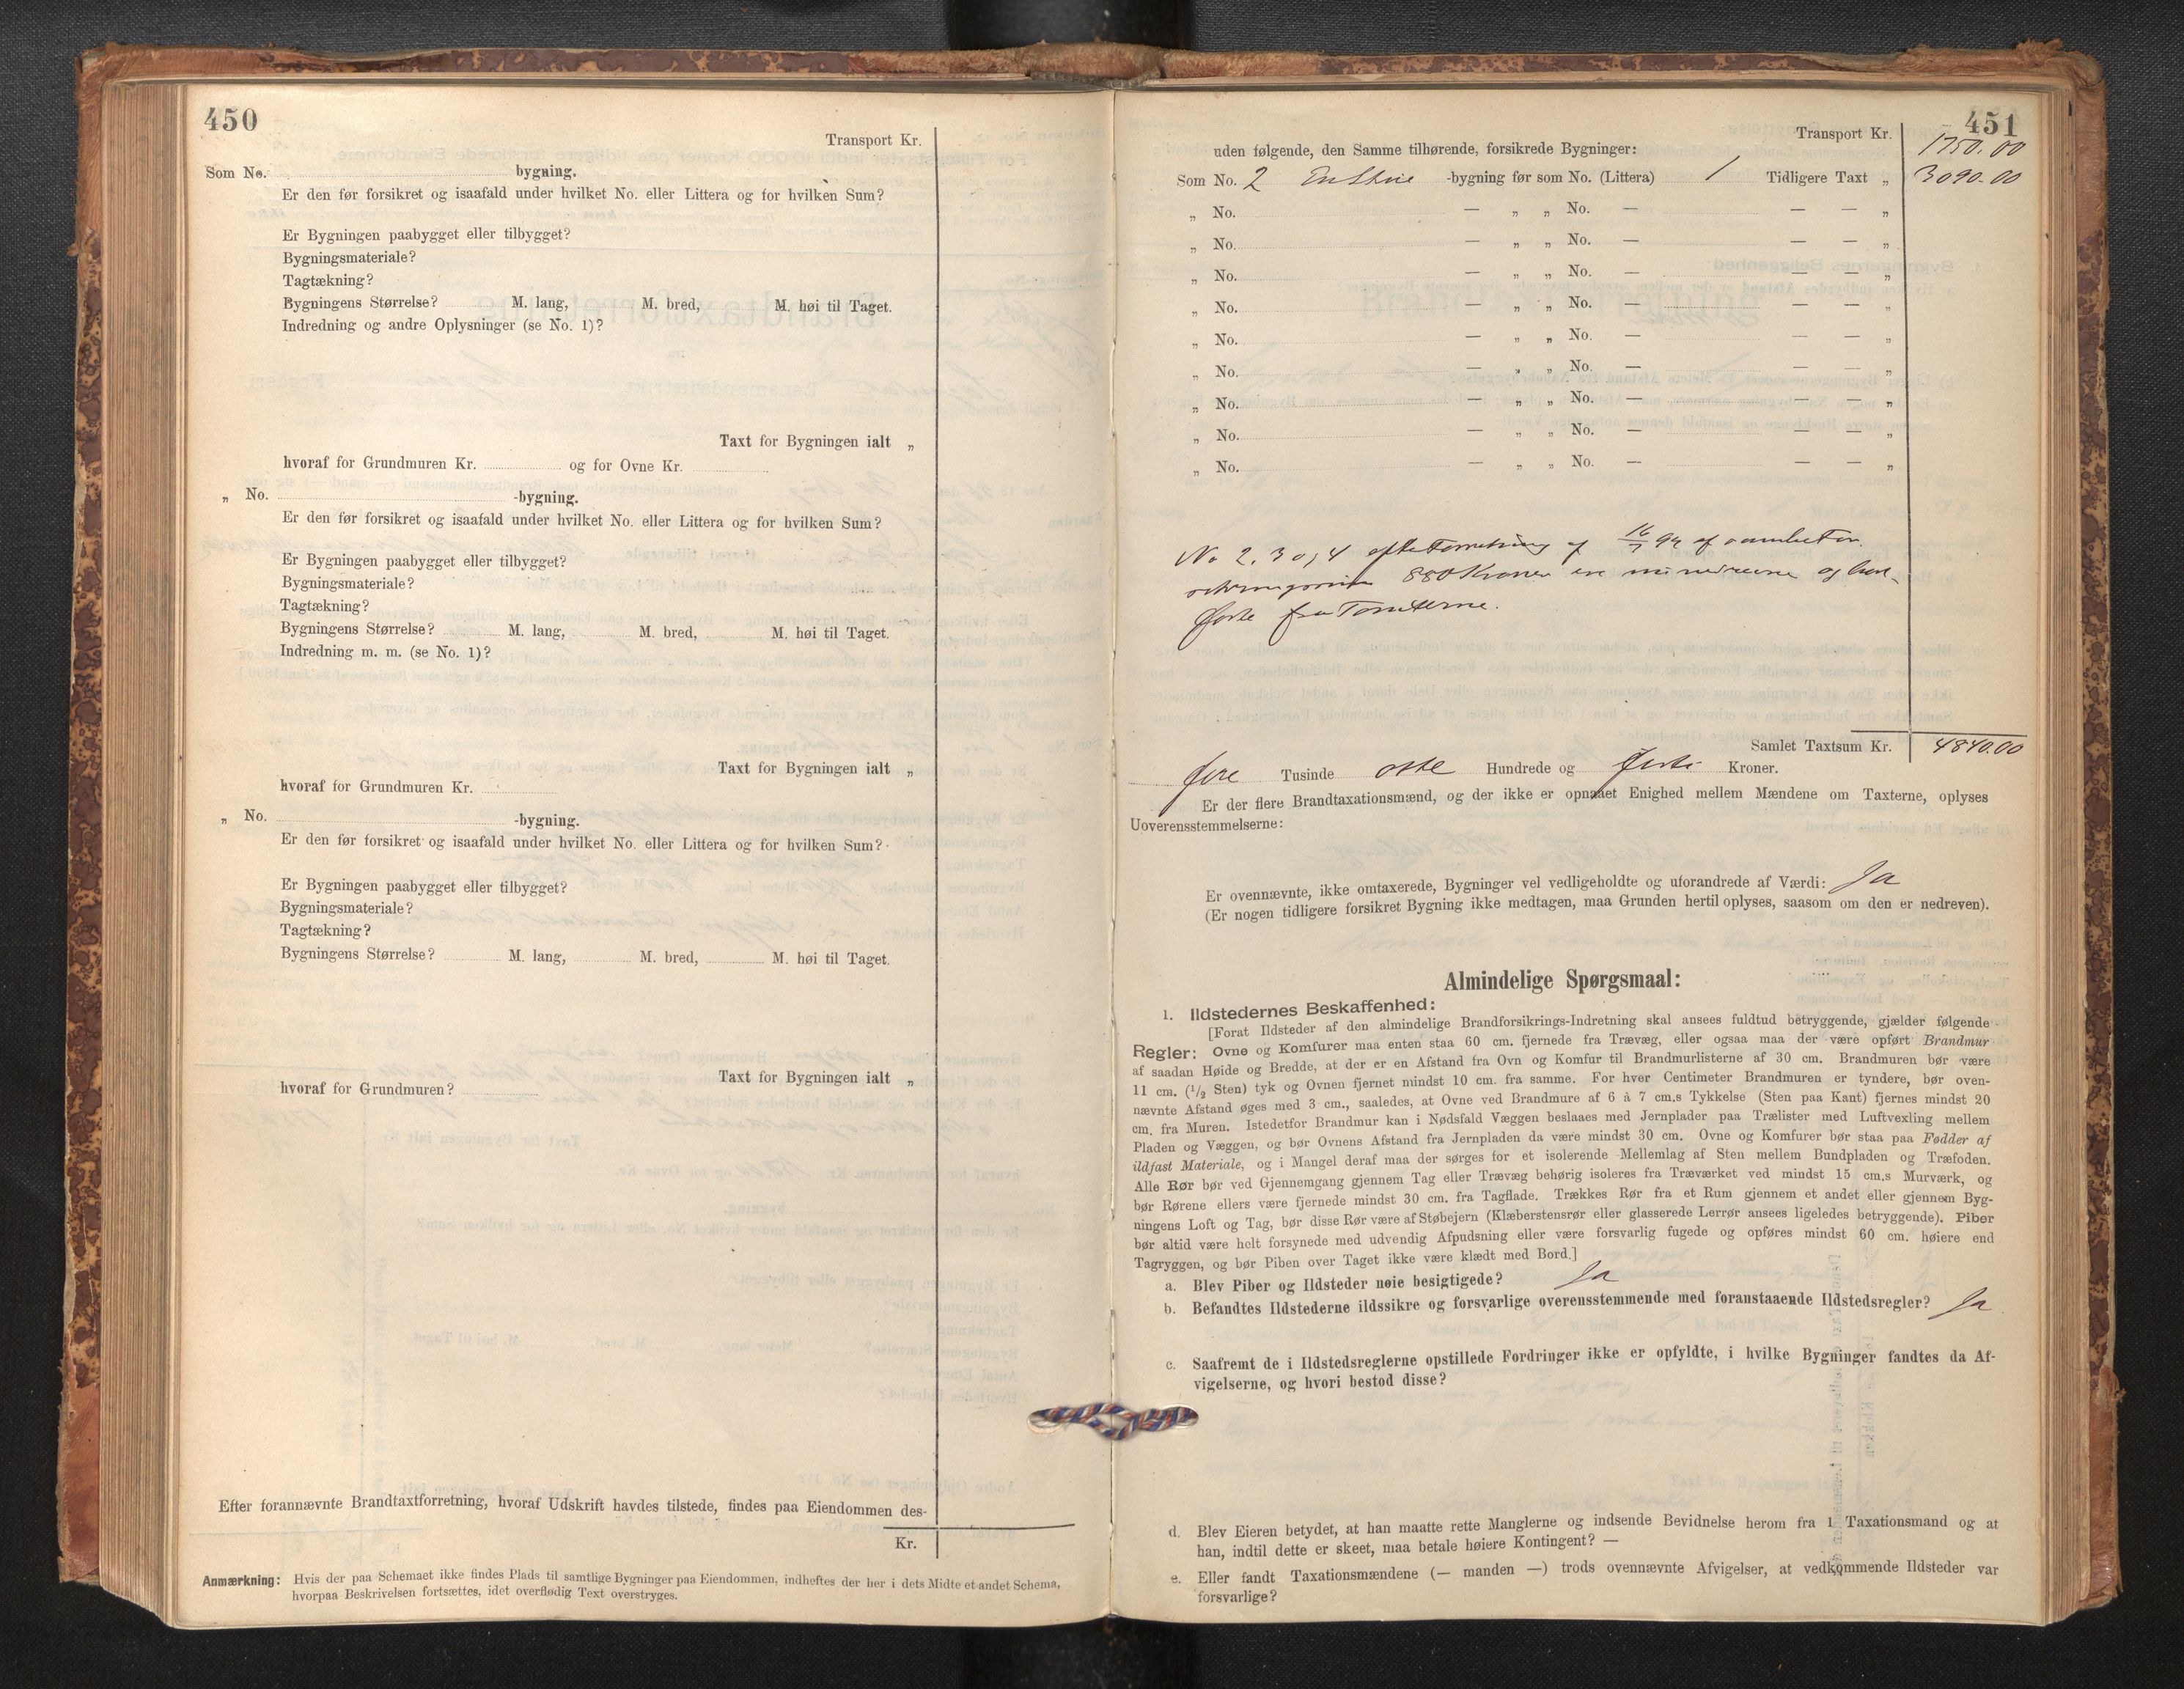 450
Transport Kr.
Som No. bygning.
Er den før forsikret og isaafald under hvilket No. eller Littera og for hvilken Sum?
Er Bygningen paabygget eller tilbygget?
Bygningsmateriale?
Tagtækning?
Bygningens Størrelse? M. lang, M. bred, M. høi til Taget.
Indredning og andre Oplysninger (se No. 1)?
Taxt for Bygningen ialt „
hvoraf for Grundmuren Kr. og for Ovne Kr.
„ No. -bygning.
Er den før forsikret og isaafald under hvilket No. eller Littera og for hvilken Sum?
Er Bygningen paabygget eller tilbygget?
Bygningsmateriale?
Tagtækning?
Bygningens Størrelse? M. lang, M. bred, M. høi til Taget.
Indredning m. m. (se No. 1)?
Taxt for Bygningen ialt „
hvoraf for Grundmuren Kr.
„ No. -bygning.
Er den før forsikret og isaafald under hvilket No. eller Littera og for hvilken Sum?
Er Bygningen paabygget eller tilbygget?
Bygningsmateriale?
Tagtækning?
Bygningens Størrelse? M. lang, M. bred, M. høi til Taget.
Taxt for Bygningen ialt „
hvoraf for Grundmuren?
Efter forannævnte Brandtaxtforretning, hvoraf Udskrift havdes tilstede, findes paa Eiendommen des-
Kr.
Anmærkning: Hvis der paa Schemaet ikke findes Plads til samtlige Bygninger paa Eiendommen, indheftes der her i dets Midte et andet Schema,
hvorpaa Beskrivelsen fortsættes, idet overflødig Text overstryges.
451
Transport Kr. 1750.00
uden følgende, den Samme tilhørende, forsikrede Bygninger:
Som No. 2 En -bygning før som No. (Littera) 1 Tidligere Taxt „ 3090.00
„ No. — „ „ No. — — — „
„ No. — „ „ No. — — — „
„ No. — „ „ No. — — — „
„ No. — „ „ No. — — — „
„ No. — „ „ No. — — — „
„ No. — „ „ No. — — — „
„ No. — „ „ No. — — — „
„ No. — „ „ No. — — — „
„ No. — „ „ No. — — — „
No 2, 3 og 4 af 16/7 94 af
880 Kroner ere og
førte fra
Samlet Taxtsum Kr. 4840.00
fire Tusinde otte Hundrede og førti Kroner.
Er der flere Brandtaxationsmænd, og der ikke er opnaaet Enighed mellem Mændene om Taxterne, oplyses
Uoverensstemmelserne:
Er ovennævnte, ikke omtaxerede, Bygninger vel vedligeholdte og uforandrede af Værdi: Ja
(Er nogen tidligere forsikret Bygning ikke medtagen, maa Grunden hertil oplyses, saasom om den er nedreven).
Almindelige Spørgsmaal:
1. Ildstedernes Beskaffenhed:
[Forat Ildsteder af den almindelige Brandforsikrings-Indretning skal ansees fuldtud betryggende, gjælder følgende
Regler: Ovne og Komfurer maa enten staa 60 cm. fjernede fra Trævæg, eller ogsaa maa der være opført Brandmur
af saadan Høide og Bredde, at der er en Afstand fra Ovn og Komfur til Brandmurlisterne af 30 cm. Brandmuren bør være
11 cm. (1/2 Sten) tyk og Ovnen fjernet mindst 10 cm. fra samme. For hver Centimeter Brandmuren er tyndere, bør oven-
nævnte Afstand øges med 3 cm., saaledes, at Ovne ved Brandmure af 6 à 7 cm.s Tykkelse (Sten paa Kant) fjernes mindst 20
cm. fra Muren. Istedetfor Brandmur kan i Nødsfald Væggen beslaaes med Jernplader paa Trælister med Luftvexling mellem
Pladen og Væggen, og bør Ovnens Afstand fra Jernpladen da være mindst 30 cm. Ovne og Komfurer bør staa paa Fødder af
ildfast Materiale, og i Mangel deraf maa der sørges for et isolerende Mellemlag af Sten mellem Bundpladen og Træfoden.
Alle Rør bør ved Gjennemgang gjennem Tag eller Trævæg behørig isoleres fra Træværket ved mindst 15 cm.s Murværk, og
bør Rørene ellers være fjernede mindst 30 cm. fra Tagflade. Trækkes Rør fra et Rum gjennem et andet eller gjennem Byg-
ningens Loft og Tag, bør disse Rør være af Støbejern (Klæberstensrør eller glasserede Lerrør ansees ligeledes betryggende). Piber
bør altid være helt forsynede med udvendig Afpudsning eller være forsvarlig fugede og opføres mindst 60 cm. høiere end
Tagryggen, og bør Piben over Taget ikke være klædt med Bord.]
a. Blev Piber og Ildsteder nøie besigtigede? Ja
b. Befandtes Ildstederne ildssikre og forsvarlige overensstemmende med foranstaaende Ildstedsregler? Ja
c. Saafremt de i Ildstedsreglerne opstillede Fordringer ikke er opfyldte, i hvilke Bygninger fandtes da Af-
vigelserne, og hvori bestod disse?
d. Blev Eieren betydet, at han maatte rette Manglerne og indsende Bevidnelse herom fra 1 Taxationsmand og at
han, indtil dette er skeet, maa betale høiere Kontingent? —
e. Eller fandt Taxationsmændene (— manden —) trods ovennævnte Afvigelser, at vedkommende Ildsteder var
forsvarlige?